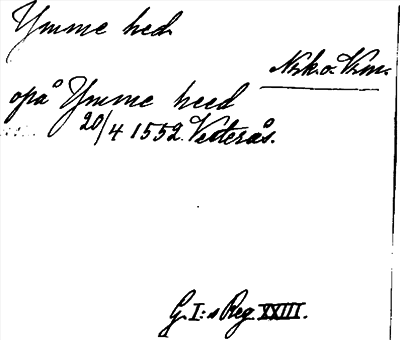 Ymme hed
Nsk o. Vsm.
opå Ymme heed
20/4 1552 Vesterås.
G. I:s Reg XXIII.